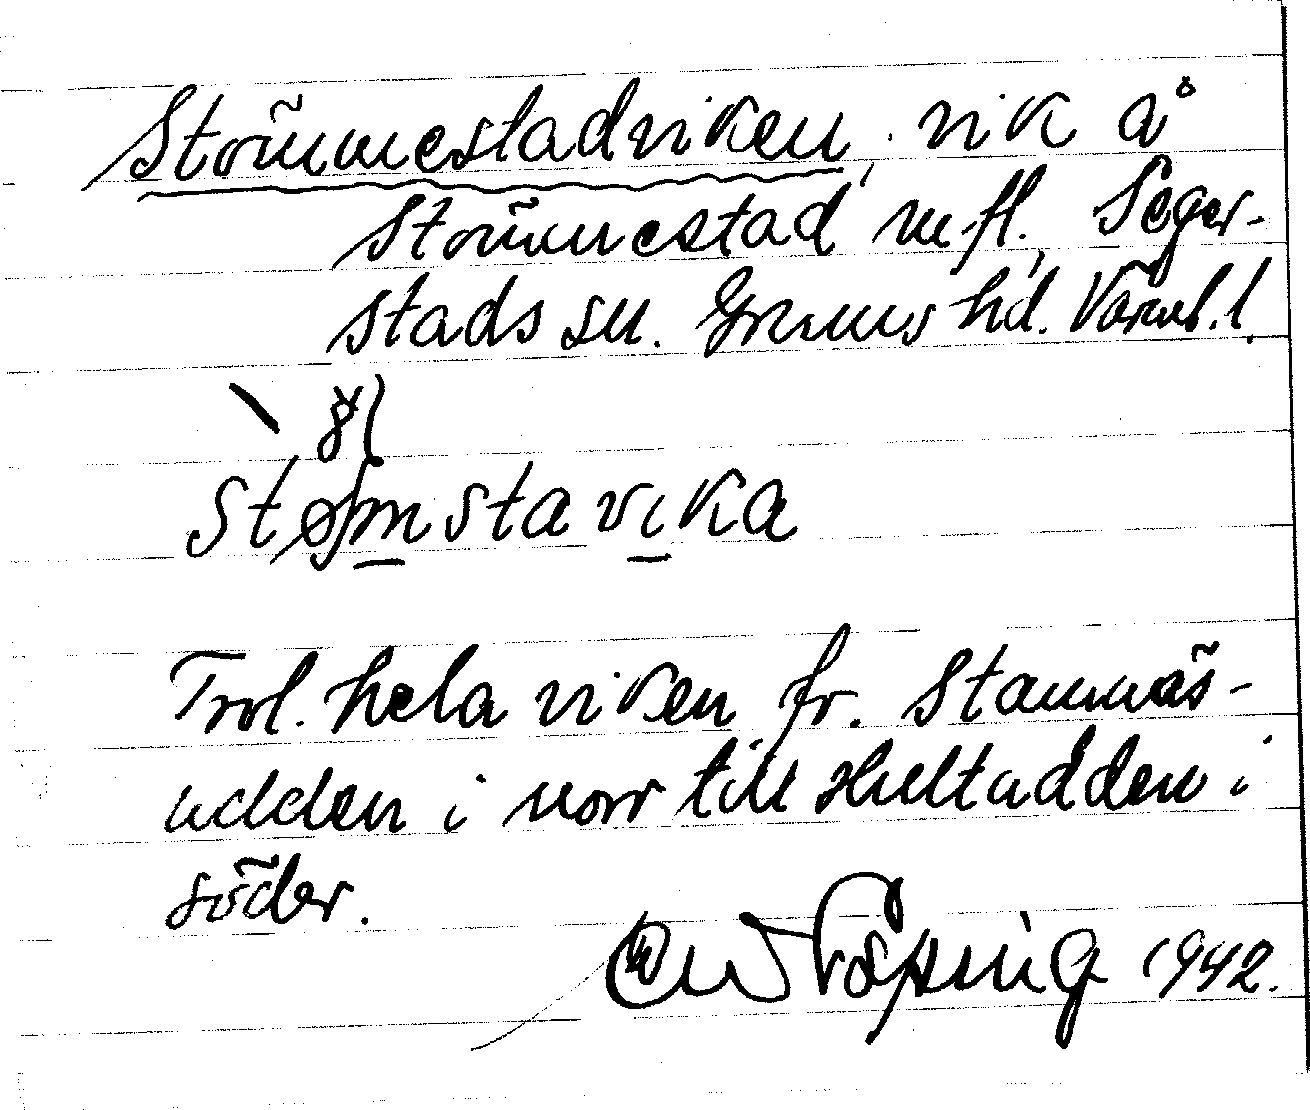 Strömmestadviken, vik å
Strömmestad m fl., Seger-
stads sn. Grums hd. Värml. l.
stømstavika
Trol. hela viken fr. Stamnäs-
udden i norr till Hultudden i
söder.
1942.